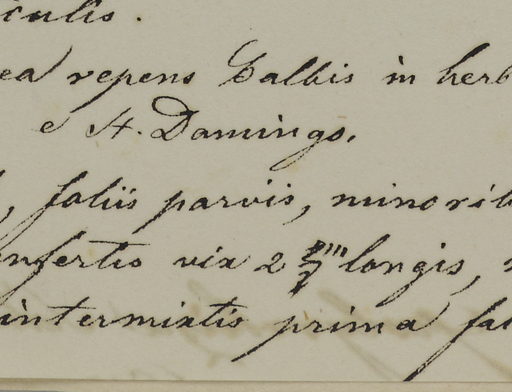 iculis.
ea repens Balbis in herb
e St. Domingo.
, foliis parvis, minorib
onfertis vix 2 longis,
intermixtis prima fa